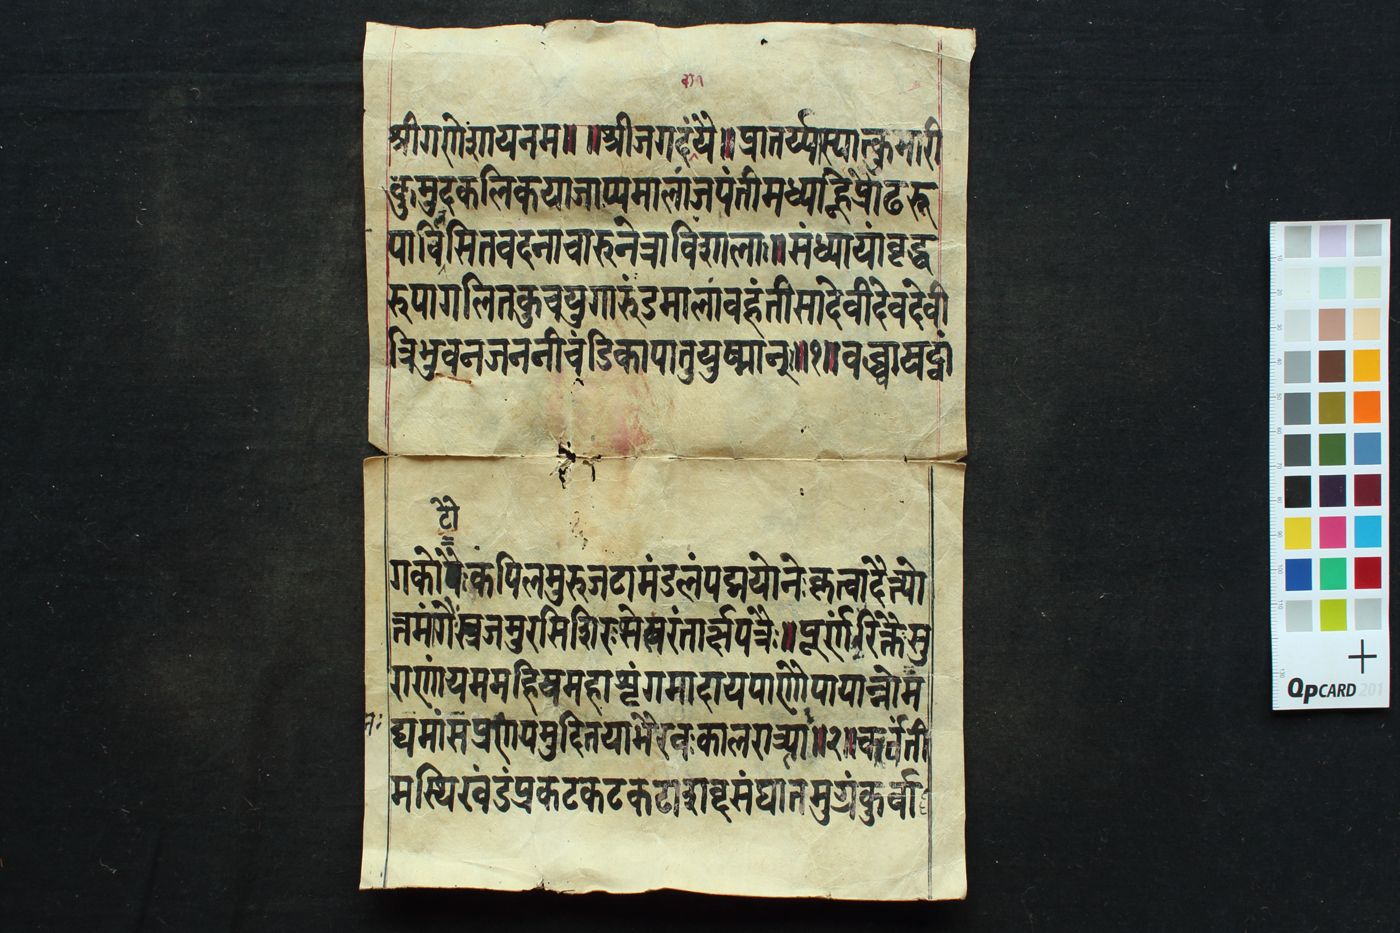 श्रीगणेशायनम॥ ॥श्रीजगदंवंयै॥प्रातर्य्यास्यात्कुमारी
कुमुदकलिकयाजाप्यमालांजपंतीमध्याह्निप्रौढरू
पाविंसितवदनाचारुनेत्राविशाला॥संध्यायांवृद्ध
रुपागलितकुचयुगारुंडमालांवहंतीसादेवीदेवदेवी
त्रिभुवनजननीचंडिकापातुयुष्मान्॥१॥वध्वाखद्वां
टौ
कपिलमुरुजटामंडलंपद्मयोनेःकृत्वादैत्यो
त्तमंगैस्रजमुरसिशिरःसेखरंतार्क्ष्यपत्रैः॥पूर्णंरिक्तैसु
राणांयममहिखमहाशृंगमादायपाणौपायान्नोमं
द्यमांसप्रणयमुदितयाभैरवःकालरात्र्यां॥२॥चर्वंती
मस्थिखंडंप्रकटकटकटाशब्दसंघातमुग्रंकुर्वा